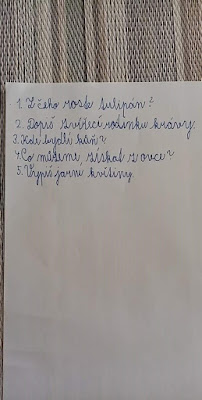 1. Z čeho roste tulipán?
2. Dopiš zvířecí rodinku krávy.
3. Kde bydlí kůň?
4. Co můžeme získat z ovce?
5. Vypiš jarní květiny.